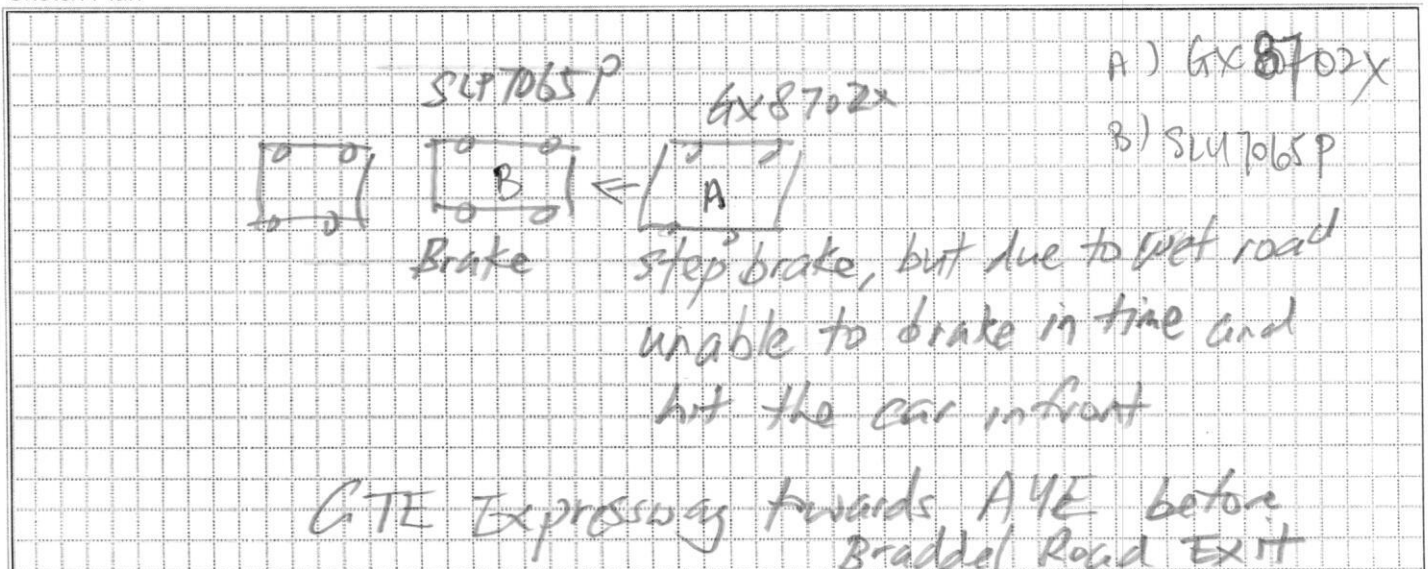 A) GX8702X
B) SLU7065P
GX8702X
B
A
Brake
step brake, but due to wet road
unable to brake in time and
hit the car infront
CTE Expressway towards AYE before
Braddel Road Exit